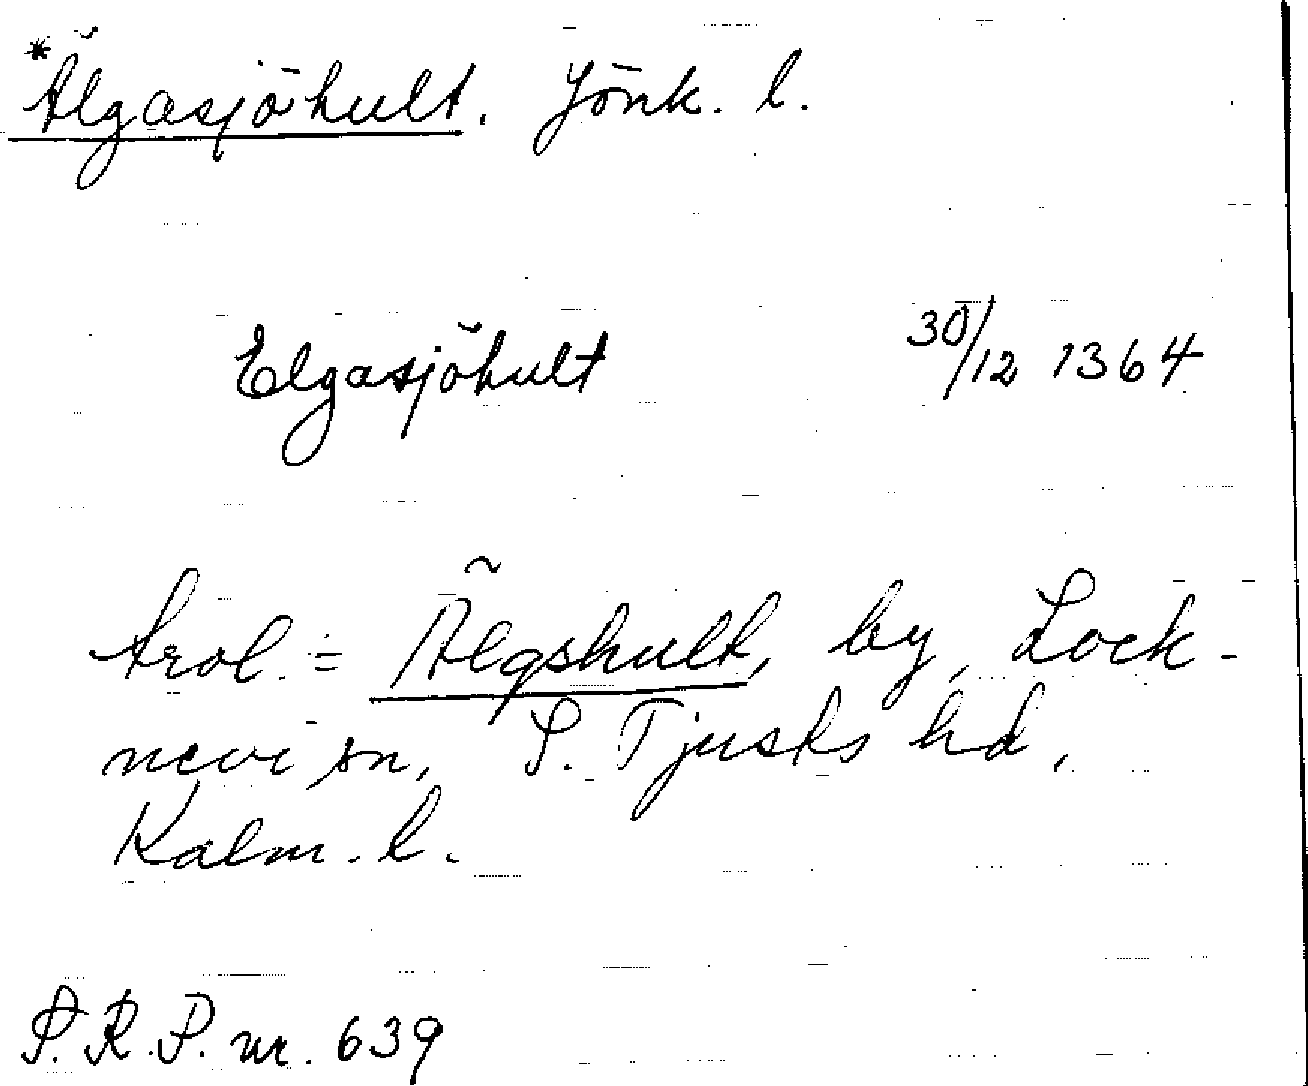 *Älgasjöhult. Jönk. l.
Elgasjöhult 30/12 1364
trol. = Älgshult, by, Lock-
nevi sn, S. Tjusts hd,
Kalm. l.
S.R.P. nr. 639